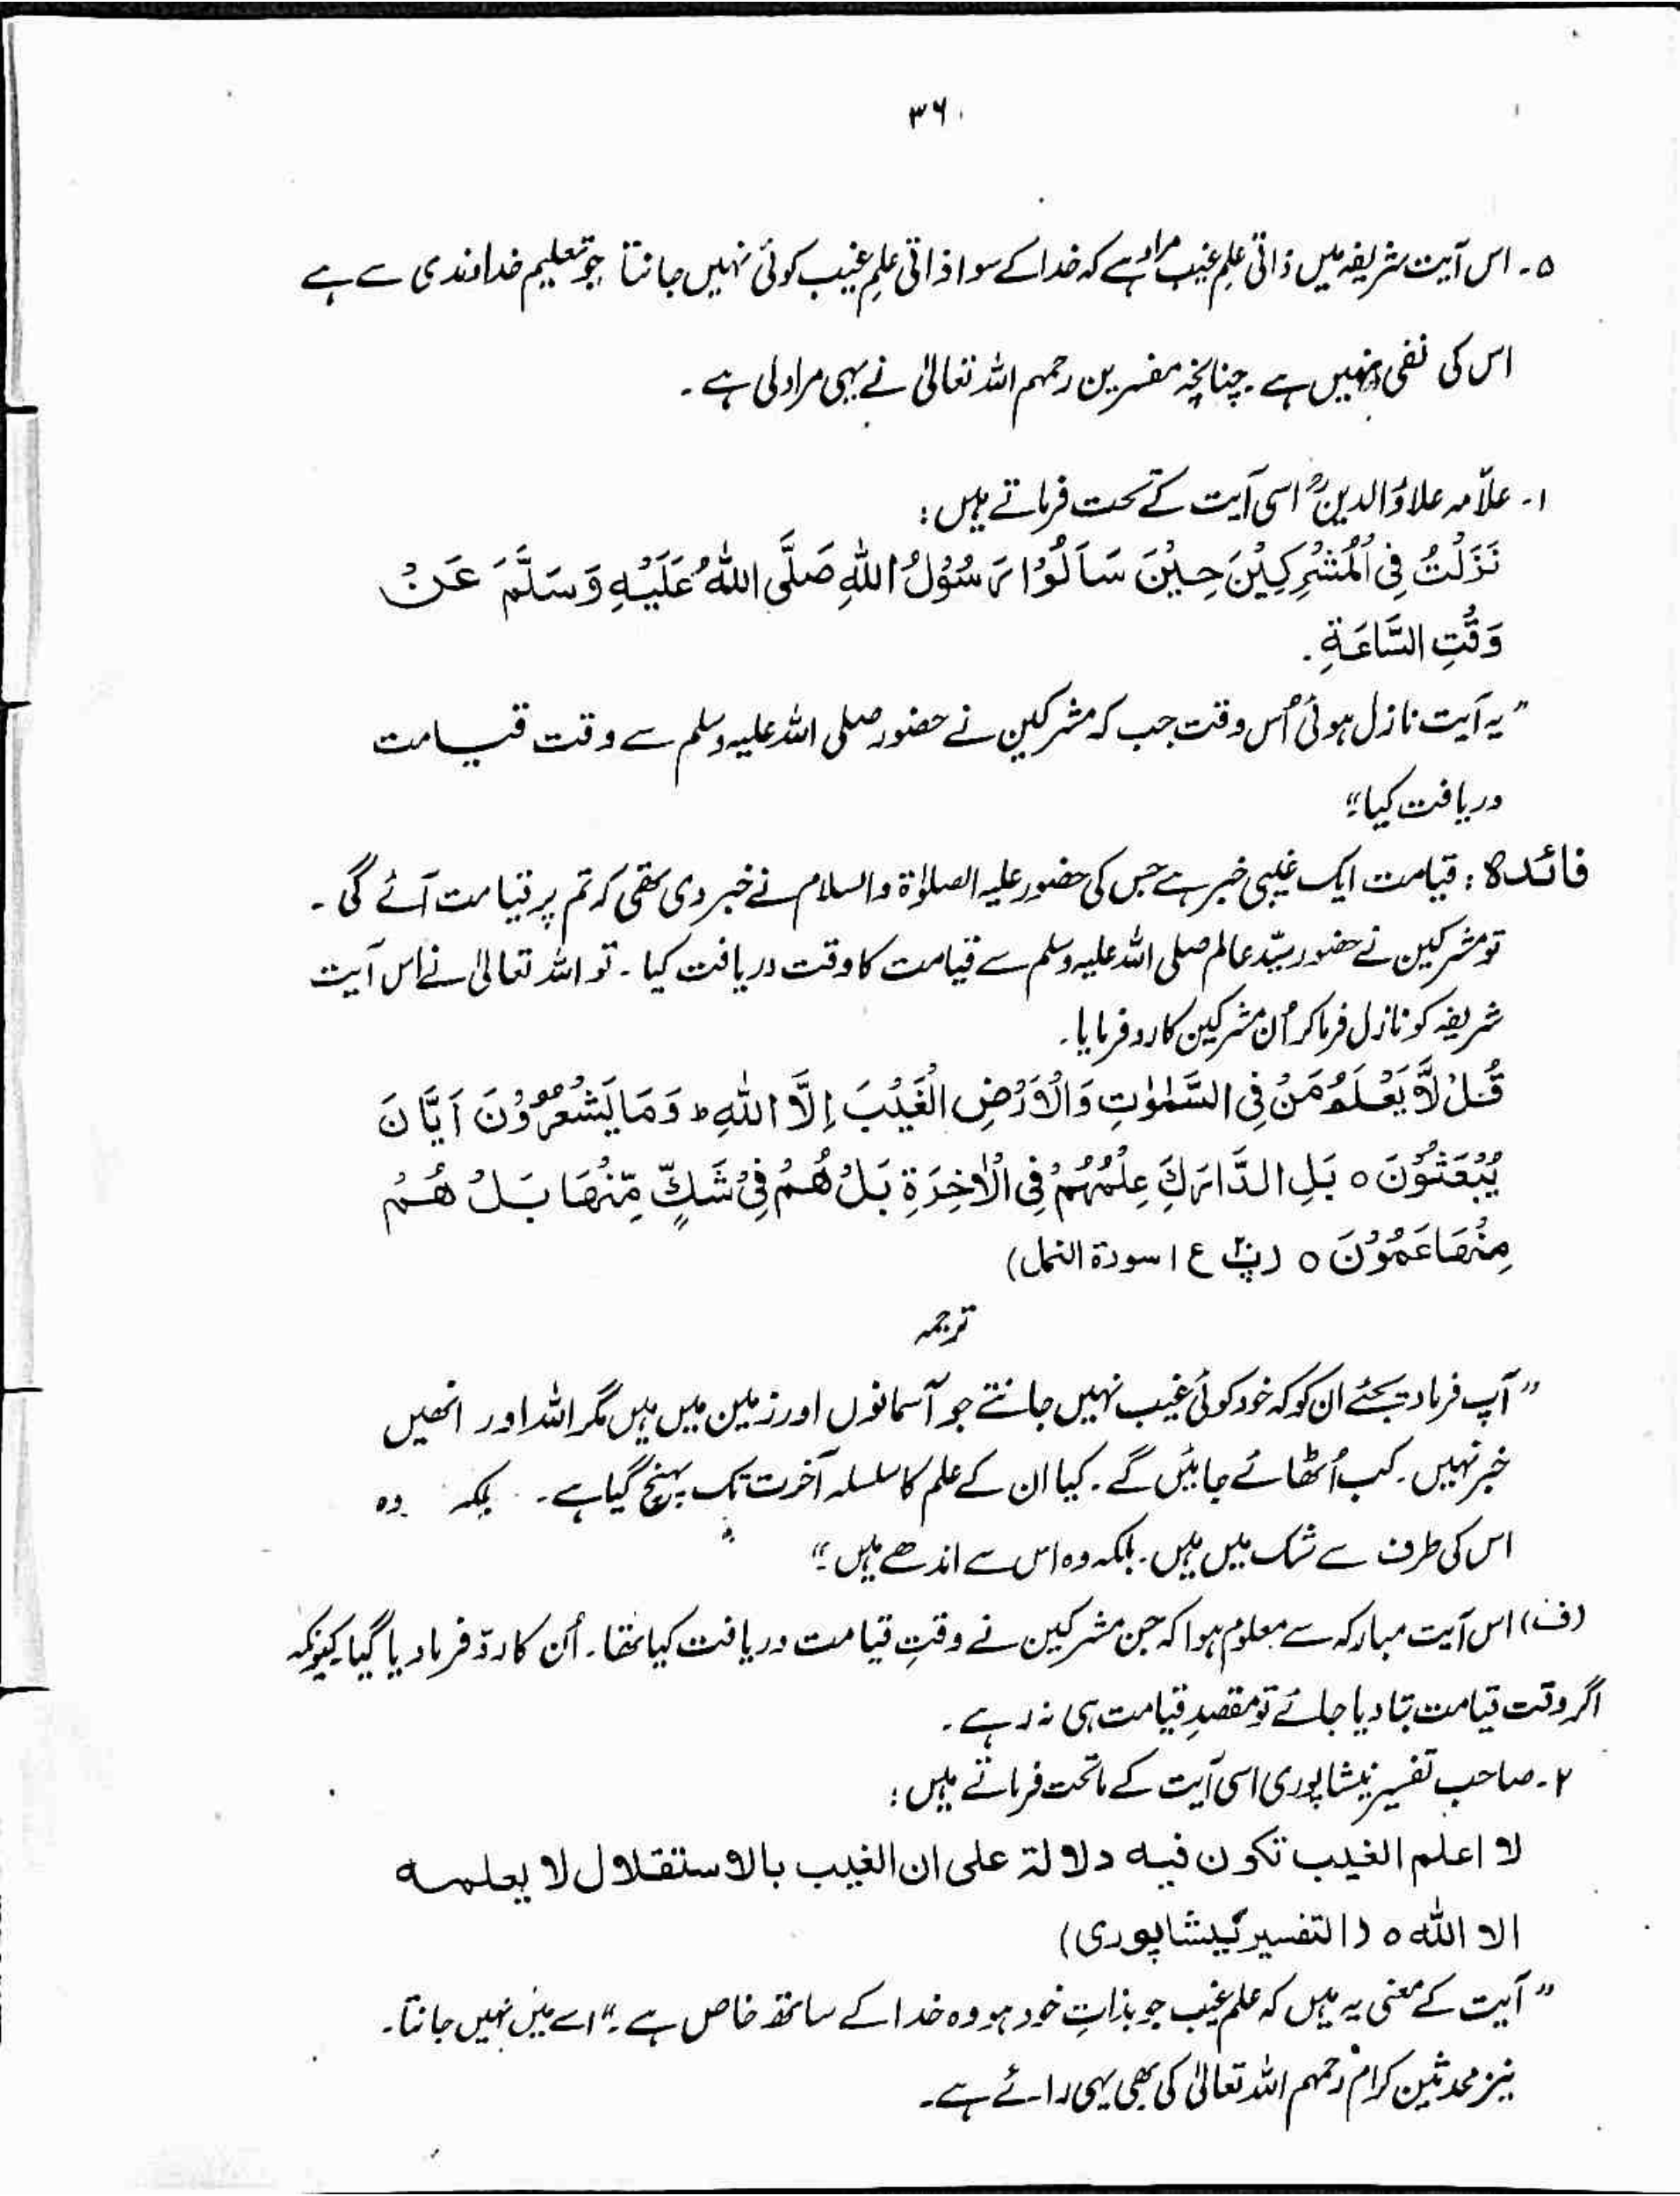 ۳۶۰
۵۔ اس آیت شریفہ میں ذاتی علم غیب مراد ہے کہ خدا کے سوا ذاتی علمِ غیب کوئی نہیں جانتا جو تعلیم خداوندی سے ہے
اس کی نفی نہیں ہے۔ چنانچہ مفسرین رحمہم اللہ تعالیٰ نے یہی مراد لی ہے۔
۱۔ علّامہ علاؤالدینؒ اسی آیت کے تحت فرماتے ہیں:
نَزَلَتْ فِی الْمُشْرِکِیْنَ حِیْنَ سَاَلُوْا رَسُوْلُ اللہِ صَلَّی اللہُ عَلَیْہِ وَسَلَّمَ عَنْ
وَقْتِ السَّاعَۃِ۔
”یہ آیت نازل ہوئی اُس وقت جب کہ مشرکین نے حضور صلی اللہ علیہ وسلم سے وقت قیامت
دریافت کیا“
فائدہ: قیامت ایک غیبی خبر ہے جس کی حضور علیہ الصلوٰۃ والسلام نے خبر دی تھی کہ تم پر قیامت آئے گی۔
تو مشرکین نے حضور سیّد عالم صلی اللہ علیہ وسلم سے قیامت کا وقت دریافت کیا۔ تو اللہ تعالیٰ نے اس آیت
شریفہ کو نازل فرما کر اُن مشرکین کا رد فرمایا۔
قُلْ لَّا یَعْلَمُ مَنْ فِی السَّمٰوٰتِ وَالْاَرْضِ الْغَیْبَ اِلَّا اللہِ ط وَمَا یَشْعُرُوْنَ اَیَّانَ
یُبْعَثُوْنَ ۝ بَلِ الدَّارَكَ عِلْمُہُمْ فِی الْاٰخِرَۃِ بَلْ ھُمْ فِیْ شَكٍّ مِّنْھَا بَلْ ھُمْ
مِنْھَا عَمُوْنَ ۝ (پ۲۰ ع ۱ سورۃ النمل)
ترجمہ
”آپ فرما دیجئے ان کو کہ خود کوئی غیب نہیں جانتے جو آسمانوں اور زمین میں ہیں مگر اللہ اور انھیں
خبر نہیں۔ کب اُٹھائے جائیں گے۔ کیا ان کے علم کا سلسلہ آخرت تک پہنچ گیا ہے۔ بلکہ وہ
اس کی طرف سے شک میں ہیں۔ بلکہ وہ اس سے اندھے ہیں“
(ف) اس آیت مبارکہ سے معلوم ہوا کہ جن مشرکین نے وقتِ قیامت دریافت کیا تھا۔ اُن کا ردّ فرما دیا گیا کیونکہ
اگر وقت قیامت بتا دیا جائے تو مقصدِ قیامت ہی نہ رہے۔
۲۔ صاحب تفسیر نیشاپوری اسی آیت کے ماتحت فرماتے ہیں:
لا اعلم الغیب تکون فیہ دلالۃ علی ان الغیب بالاستقلال لا یعلمہ
الا اللہ ۝ (التفسیر نیشاپوری)
”آیت کے معنی یہ ہیں کہ علم غیب جو بذاتِ خود ہو وہ خدا کے ساتھ خاص ہے۔“ اسے میں نہیں جانتا۔
نیز محدثین کرام رحمہم اللہ تعالیٰ کی بھی یہی رائے ہے۔